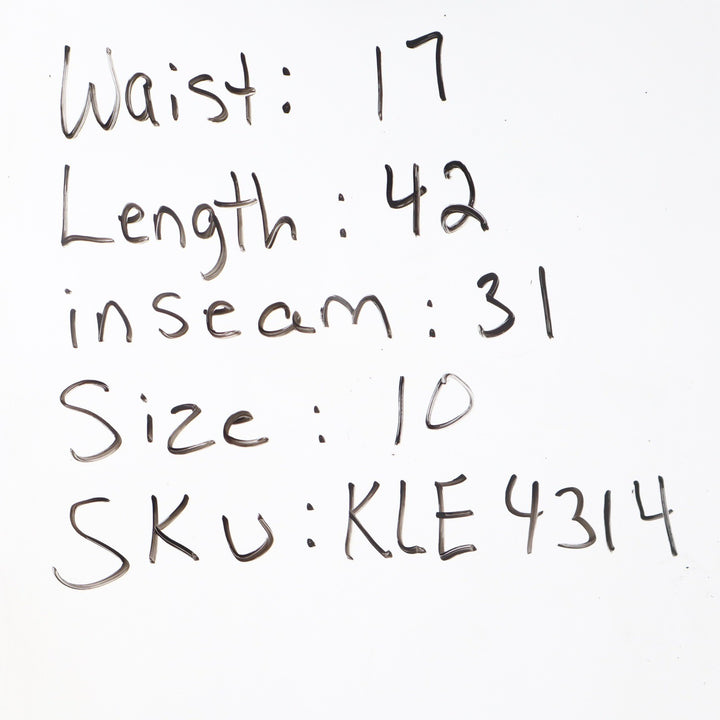 Waist: 17
Length: 42
inseam: 31
Size: 10
SKU: KLE4314